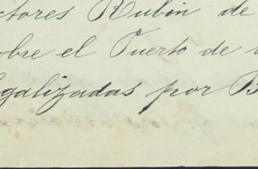 ctores Rubin de
obre el Puerto de
galizadas por B